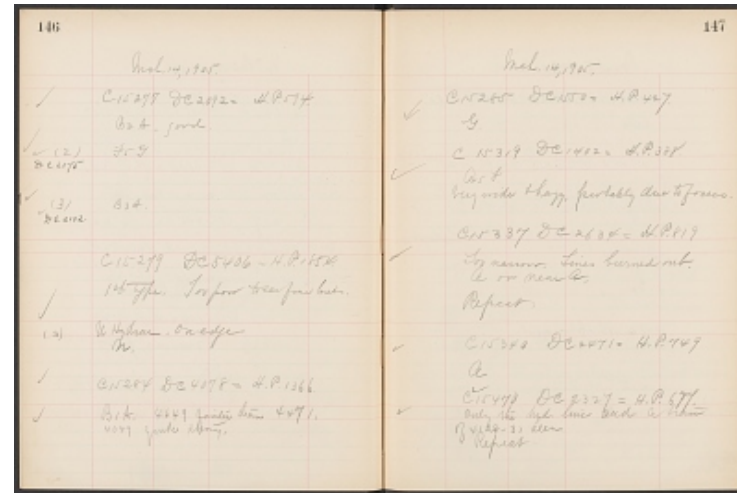 146
Mch. 14, 1905.
C 15278 DC 2092 = H.P. 574
B2A. good
(2) F5G
DC 2095
(3) B2A.
DC 2102
C 15279 DC 5406 = H.P. 1654
1st type. Too poor to see fine lines.
(2) U Hydrae. on edge
N.
C 15284 DC 4078 = H.P. 1266
B2A. 4649 greater than 4471.
147
Mch. 14, 1905.
C 15285 DC 1550 = H.P. 427
G.
C 15319 DC 1402 = H.P. 388
very wide & hazy, probably due to focus.
C 15337 DC 2634 = H.P. 819
Too narrow. Lines burned out.
A or near A.
Repeat.
C 15340 DC 2471 = H.P. 749
A
C 15478 DC 2327 = H.P. 677.
only the hyd. lines and a
of 4128-31 seen
Repeat